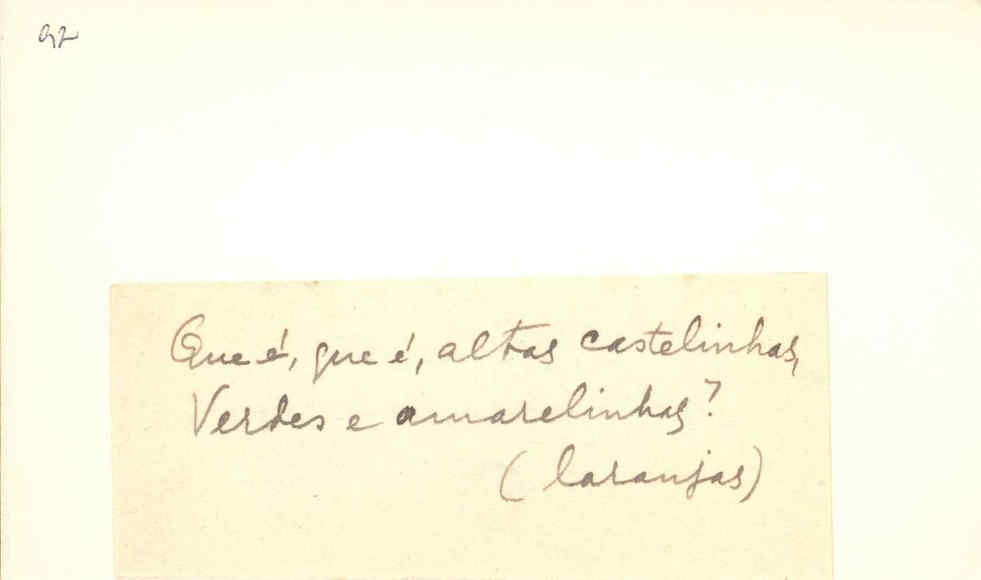 Que é, que é, altas castelinhas,
Verdes e amarelinhas?
(laranjas)